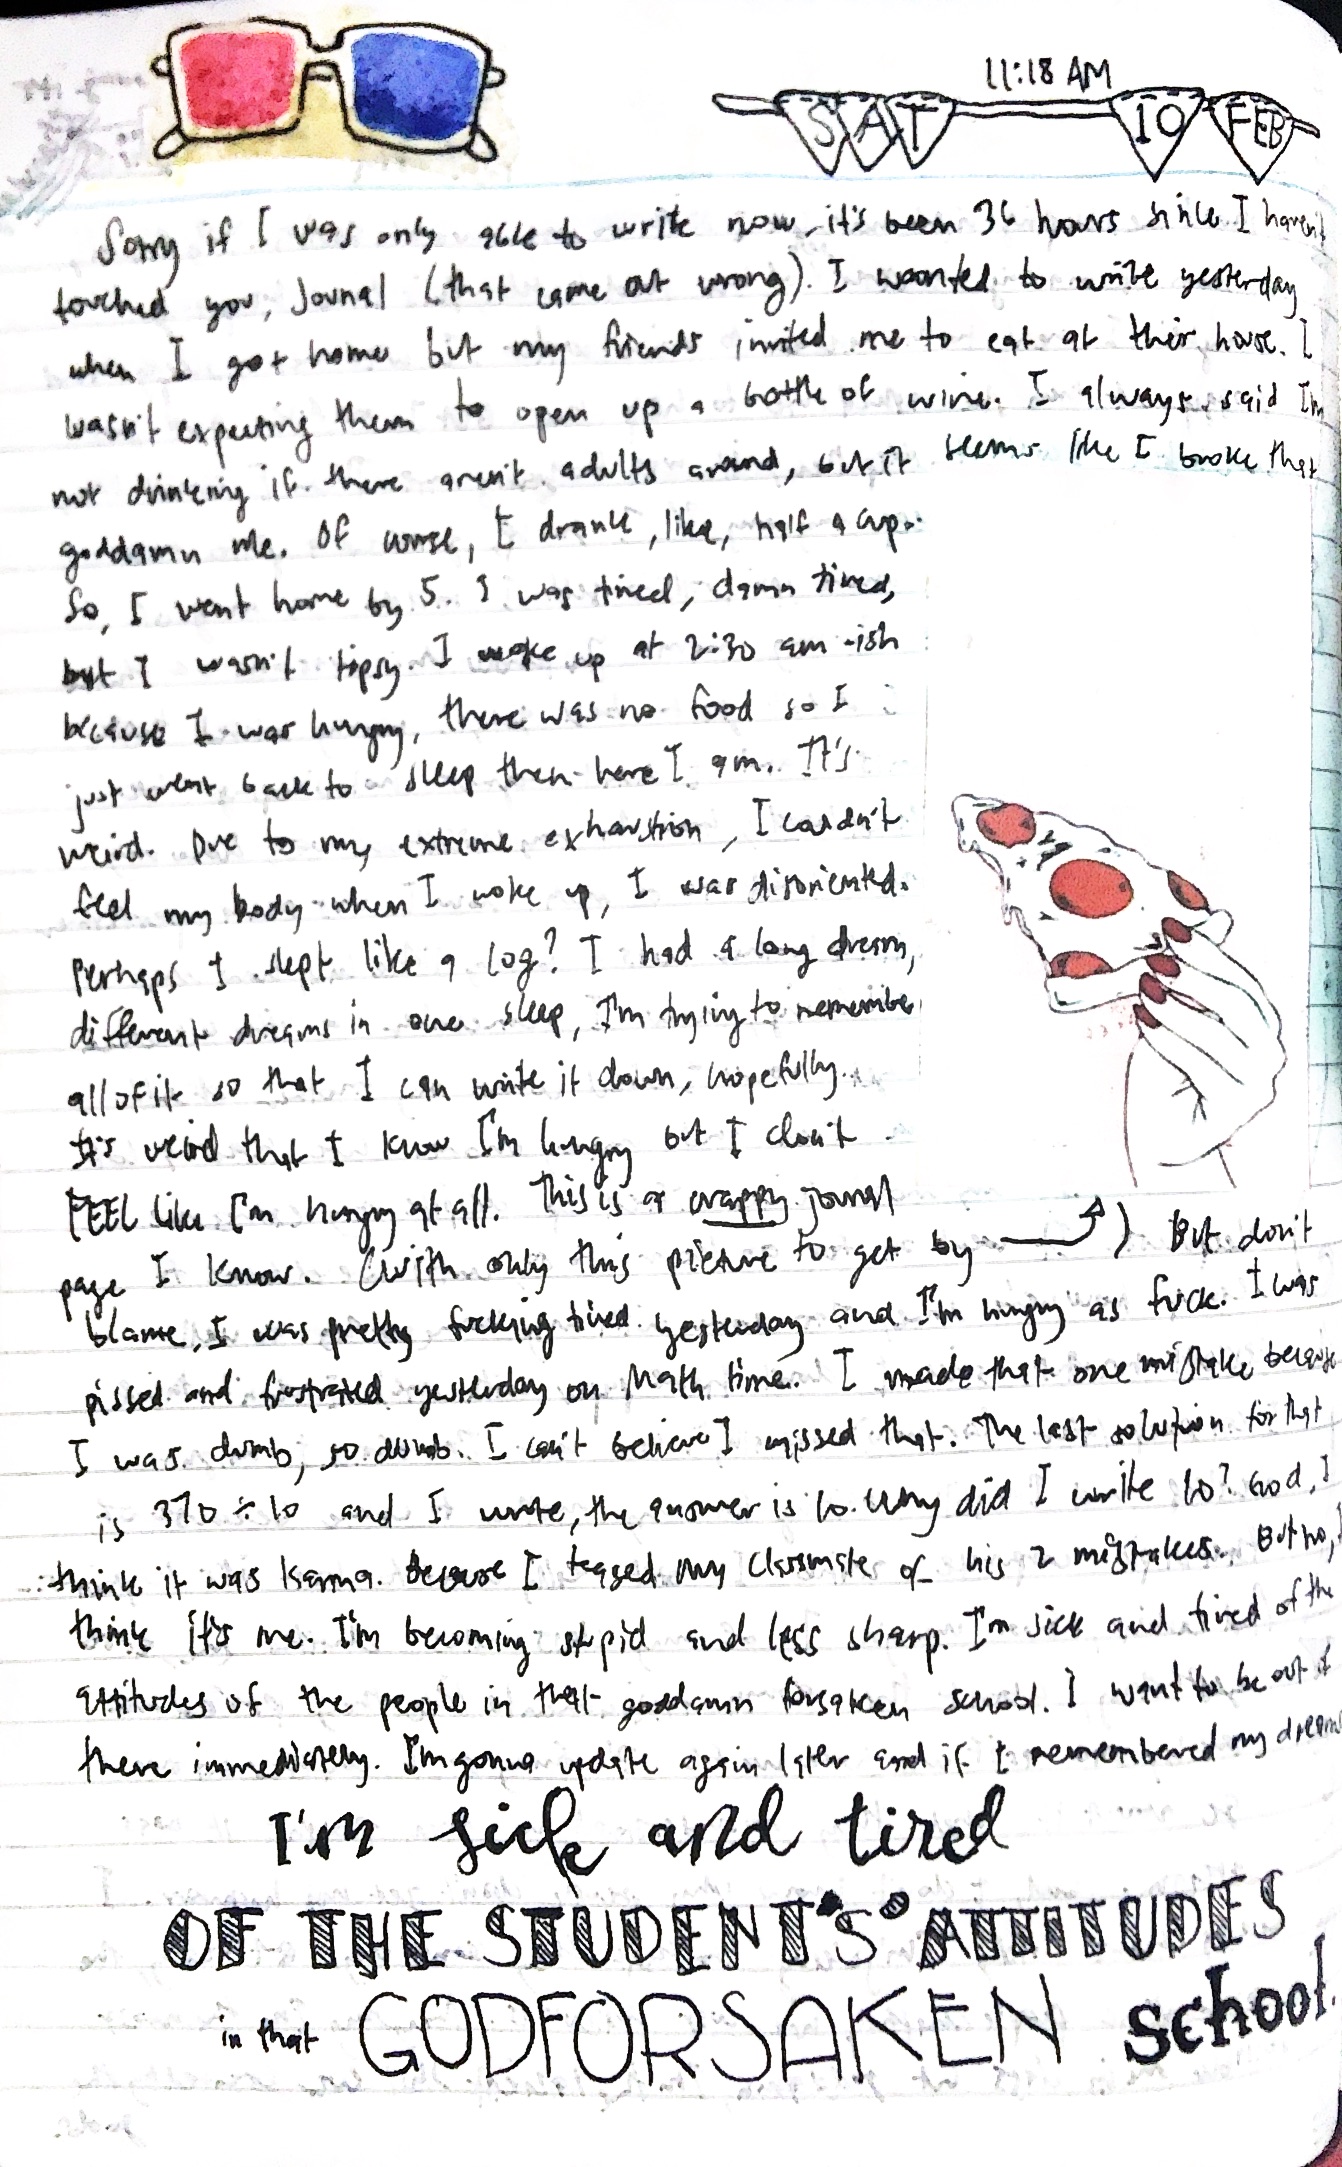 11:18 AM
SAT 10 FEB
Sorry if I was only able to write now, it's been 36 hours since I haven't
touched you, Jounal (that came out wrong). I wanted to write yesterday
when I got home but my friends invited me to eat at their house. I
wasn't expecting them to open up a bottle of wine. I always said I'm
not drinking if there aren't adults around, but it seems like I broke that
goddamn rule. Of course, I drank, like, half a cup..
So, I went home by 5. I was tired, damn tired,
but I wasn't tipsy. I woke up at 2:30 am-ish
because I was hungry, there was no food so I
just went back to sleep then here I am. It's
weird. Due to my extreme exhaustion, I couldn't
feel my body when I woke up, I was disoriented.
Perhaps I slept like a log? I had a long dream,
different dreams in one sleep, I'm trying to remember
all of it so that I can write it down, hopefully.
It's weird that I know I'm hungry but I don't
FEEL like I'm hungry at all. This is a crappy journal
page I know. (with only this picture to get by ) But don't
blame, I was pretty fucking tired yesterday and I'm hungry as fuck. I was
pissed and frustrated yesterday on Math time. I made that one mistake because
I was dumb, so dumb. I can't believe I missed that. The last solution for that
is 370 ÷ 10 and I wrote, the answer is 10. Why did I write 10? God, I
think it was karma. Because I teased my classmate of his 2 mistakes. But no, I
think it's me. I'm becoming stupid and less sharp. I'm sick and tired of the
attitudes of the people in that goddamn forsaken school. I want to be out of
there immediately. I'm gonna update again later and if I remembered my dreams
I'm sick and tired
OF THE STUDENT'S ATTITUDES
in that GODFORSAKEN school.